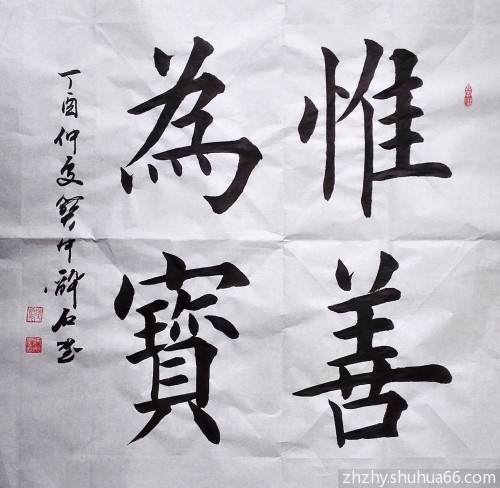 惟善
為寶
丁酉仲夏賀中醉石書
zhzhy.shuhua66.com